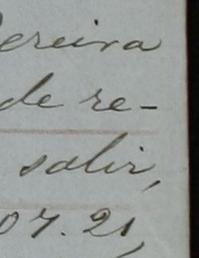 Pereira
de re-
salir,
07.21,